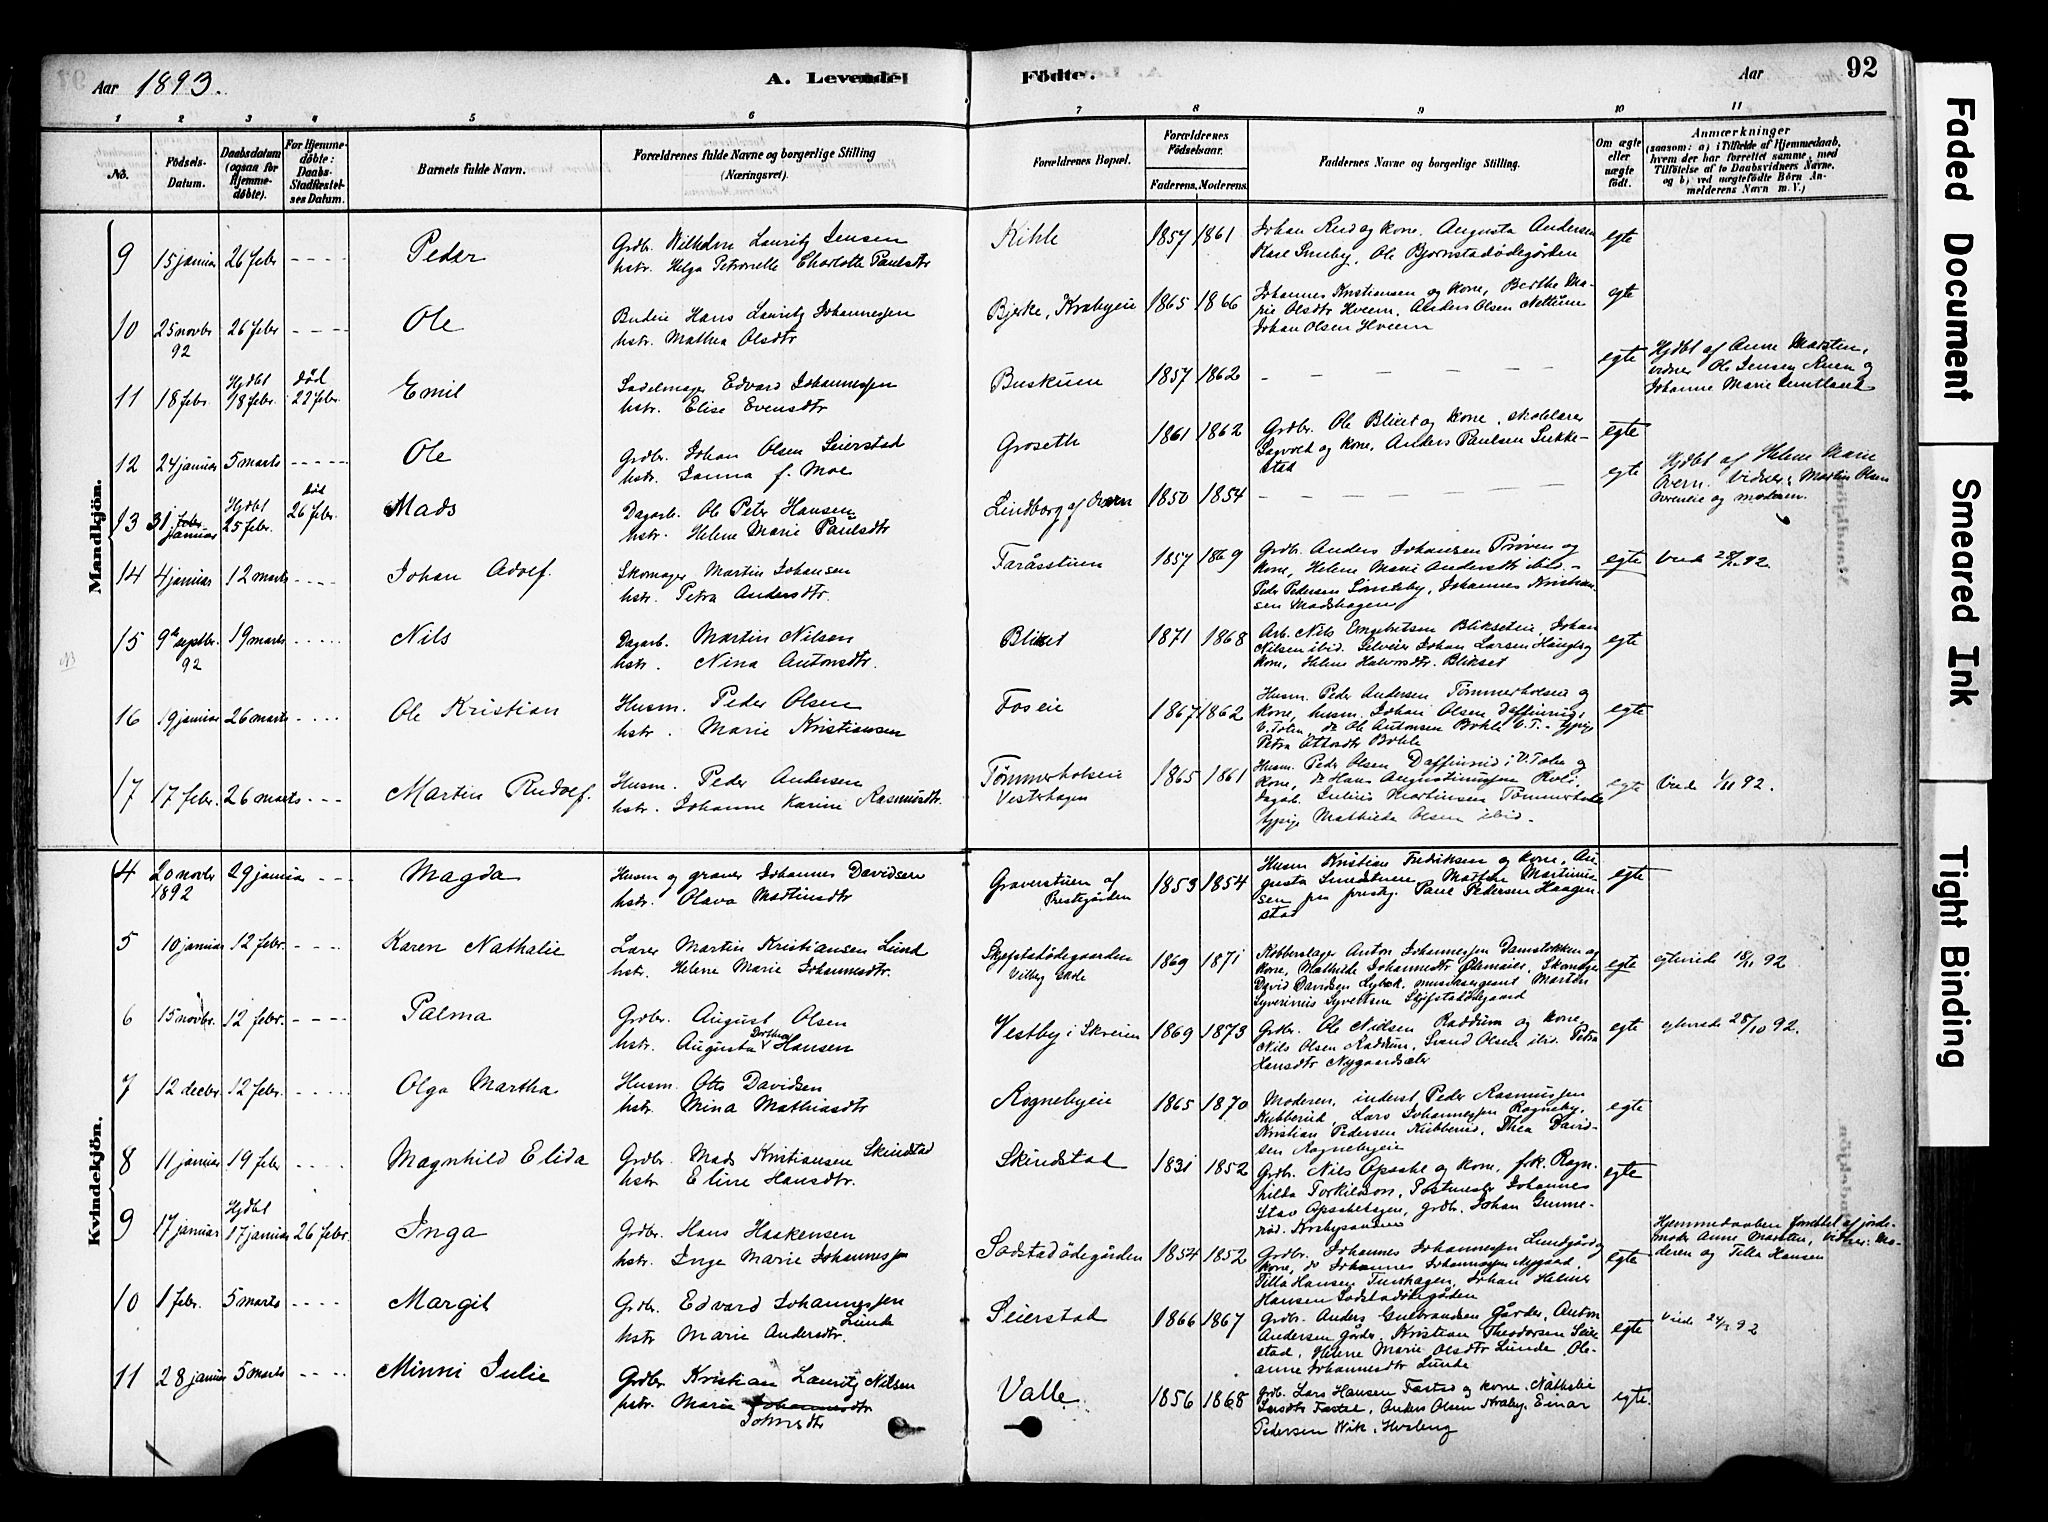 Aar 1893.
A. Levende
Födte.
Aar
92
1 2 3 4 5 6 7 8 9 10 11
No.
Födsels-Datum.
Daabsdatum (ogsaa for Hjemmedøbte).
For Hjemmedøbte: Daabs-Stadfæstelses Datum.
Barnets fulde Navn.
Forældrenes fulde Navne og borgerlige Stilling (Næringsvei).
Forældrenes Bopæl.
Forældrenes Fødselsaar.
Faderens. Moderens.
Faddernes Navne og borgerlige Stilling.
Om ægte eller uægte født.
Anmærkninger (saasom: a) i Tilfælde af Hjemmedaab, hvem der har forrettet samme, med Tilføielse af to Daabsvidners Navne, og b) ved uægtefødte Børn Anmelderens Navn m. V.)
Mandkjön.
9 15 januar 26 febr. Peder Grdbr. Wilhelm Lauritz Jensen
hstr. Helga Petronelle Charlotte Paulsdtr
Kihle 1857 1861 Johan Rud og kone, Augusta Andersen
Ole Bjørnstadødegården egte
10 25 novbr 92 26 febr Ole Hans Lauritz Johannessen
hstr. Mathea Olsdtr
Bjerke, Krabyeie 1865 1866 Johannes Kristiansen og kone, Berthe Marie Olsdtr Hveem, Anders Olsen Nettum
Johan Olsen Hveem egte
11 18 febr. Hjdbt 18 febr. død 22 febr. Emil Sadelmager Edvard Johannessen
hstr. Elise Evensdtr
Buskum 1857 1862 egte
Hjdbt af Anne Marsten,
vidner Ole Jensen og
Johanne Marie
12 24 januar 5 marts Ole Grdbr. Johan Olsen Seierstad
hstr. Janna f. Moe
Groseth 1861 1862 Grdbr. Ole Blilset og kone, skolelærer
og kone, Anders Paulsen Sukkestad egte
13 31 januar Hjdbt 25 febr. død 26 febr. Mads Dagarb. Ole Peter Hansen
hstr. Helene Marie Paulsdtr
Lindborg af Overn 1850 1854 egte
Hjdbt af Helene Marie
Overn. Vidner: Martin Olsen
Overneie og moderen.
14 4 januar 12 marts Johan Adolf. Skomager Martin Johansen
hstr. Petra Andersdtr.
Faråsstuen 1857 1869 Grdbr. Anders Johansen Prøven og
kone, Helene Marie Andersdtr ibid.
Peder Pedersen Sønsteby, Johannes Kristiansen Madshagen egte
15 9de septbr. 92 19 marts Nils Dagarb. Martin Nilsen
hstr. Nina Antonsdtr.
Blikset 1871 1868 Arb. Nils Engebretsen Blikseteie, Johan
Nilsen ibid. Johan Larsen
kone, Helene Halvorsdtr. Blikset egte
16 19 januar 26 marts Ole Kristian Husm. Peder Olsen
hstr. Marie Kristiansen
Foseie 1867 1862 Husm. Peder Andersen Tømmerholseie og
kone, husm. Johan Olsen Daffinrud,
V. Toten, do Ole Antonsen Bøhle V. T. - typige
Petra Ottersdtr Bøhle egte
17 17 febr. 26 marts Martin Rudolf. Husm. Peder Andersen
hstr. Johanne Karine Rasmusdtr.
Tømmerholseie
Vesterhagen 1865 1861 Husm. Peder Olsen Daffinrud i V. Toten og
kone, do Hans Augustinussen
dagarb. Julius Martinsen
Mathilde Olsen ibid. egte
Kvindekjön.
4 20 novbr 1892 29 januar Magda Husm og graver Johannes Davidsen
hstr. Olava Martinsdtr
Graverstuen af
Prestegården 1853 1854 Husm Kristian Fredriksen og kone, Augusta Smedstuen, Martin Martinussen paa prestg. Paul Pedersen Haagenstad egte
5 10 januar 12 febr. Karen Nathalie Lærer Martin Kristiansen Lund
hstr. Helene Marie Johannesdtr.
Skjefstadødegaarden 1869 1871 Kobberslager Anton Johannessen Damstokken og
kone, Mathilde Johannesdtr Skomager
David Davidsen musiksergeant Martin
Syverinus Syvertsen Skjefstadødegaard egte
6 15 novbr. 12 febr. Palma Grdbr. August Olsen
hstr. Augusta Dorthea Hansen
Vestby i Skreien 1869 1873 Grdbr. Ole Nielsen Raddum og kone,
Nils Olsen Raddum, Svend Olsen ibid. Petra
Hansdtr Nygaardsæter egte
7 12 decbr. 12 febr. Olga Martha Husm. Otto Davidsen
hstr. Mina Mathiasdtr
Rognebyeie 1865 1870 Moderen, inderst Peder Rasmussen
Kubberud, Lars Johannessen Rogneby,
Kristian Pedersen Kubberud, Thea Davidsen Rognebyeie egte
8 11 januar 19 febr Magnhild Elida Grdbr. Mads Kristiansen Skindstad
hstr. Eline Hansdtr.
Skindstad 1831 1852 Grdbr. Nils Apsahl og kone, frk. Ragnhilda Torkildson, Postmester Johannes
Stav Apsahlhagen, grdb. Johan Gunnerød. egte
9 17 januar Hjdbt 17 januar 26 febr. Inga Grdbr. Hans Haakensen
hstr. Inge Marie Johannessen
Sodstadødegården 1854 1852 Grdbr. Johannes Johannessen Lundgård og
kone, do Johannes Johannessen Nygaard,
Tilla Hansen Johan Helmer
Hansen Sodstadødegården egte
Hjemmedaaben forrettet af jordemoder Anne Marsten, vidner: Moderen og Tilla Hansen
10 1 febr. 5 marts Margit Grdbr. Edvard Johannessen Lunde
hstr Marie Andersdtr.
Seierstad 1866 1867 Grdbr. Anders Gulbrandsen Gårder, Anton
Andersen Gårder, Kristian Theodorsen Seierstad, Helene Marie Olsdtr Lunde, Oleanne Johannesdtr Lunde egte
11 28 januar 5 marts Minni Julie Grdbr Kristian Lauritz Nilsen
hstr. Marie Johannesdtr
Johnsdtr
Valle 1856 1868 Grdb. Lars Hansen Fæstad og kone, Nathalie
Anders Olsen Kraby, Einar
Pedersen Wik, Hvaleng egte.
Faded Document
Smeared Ink
Tight Binding